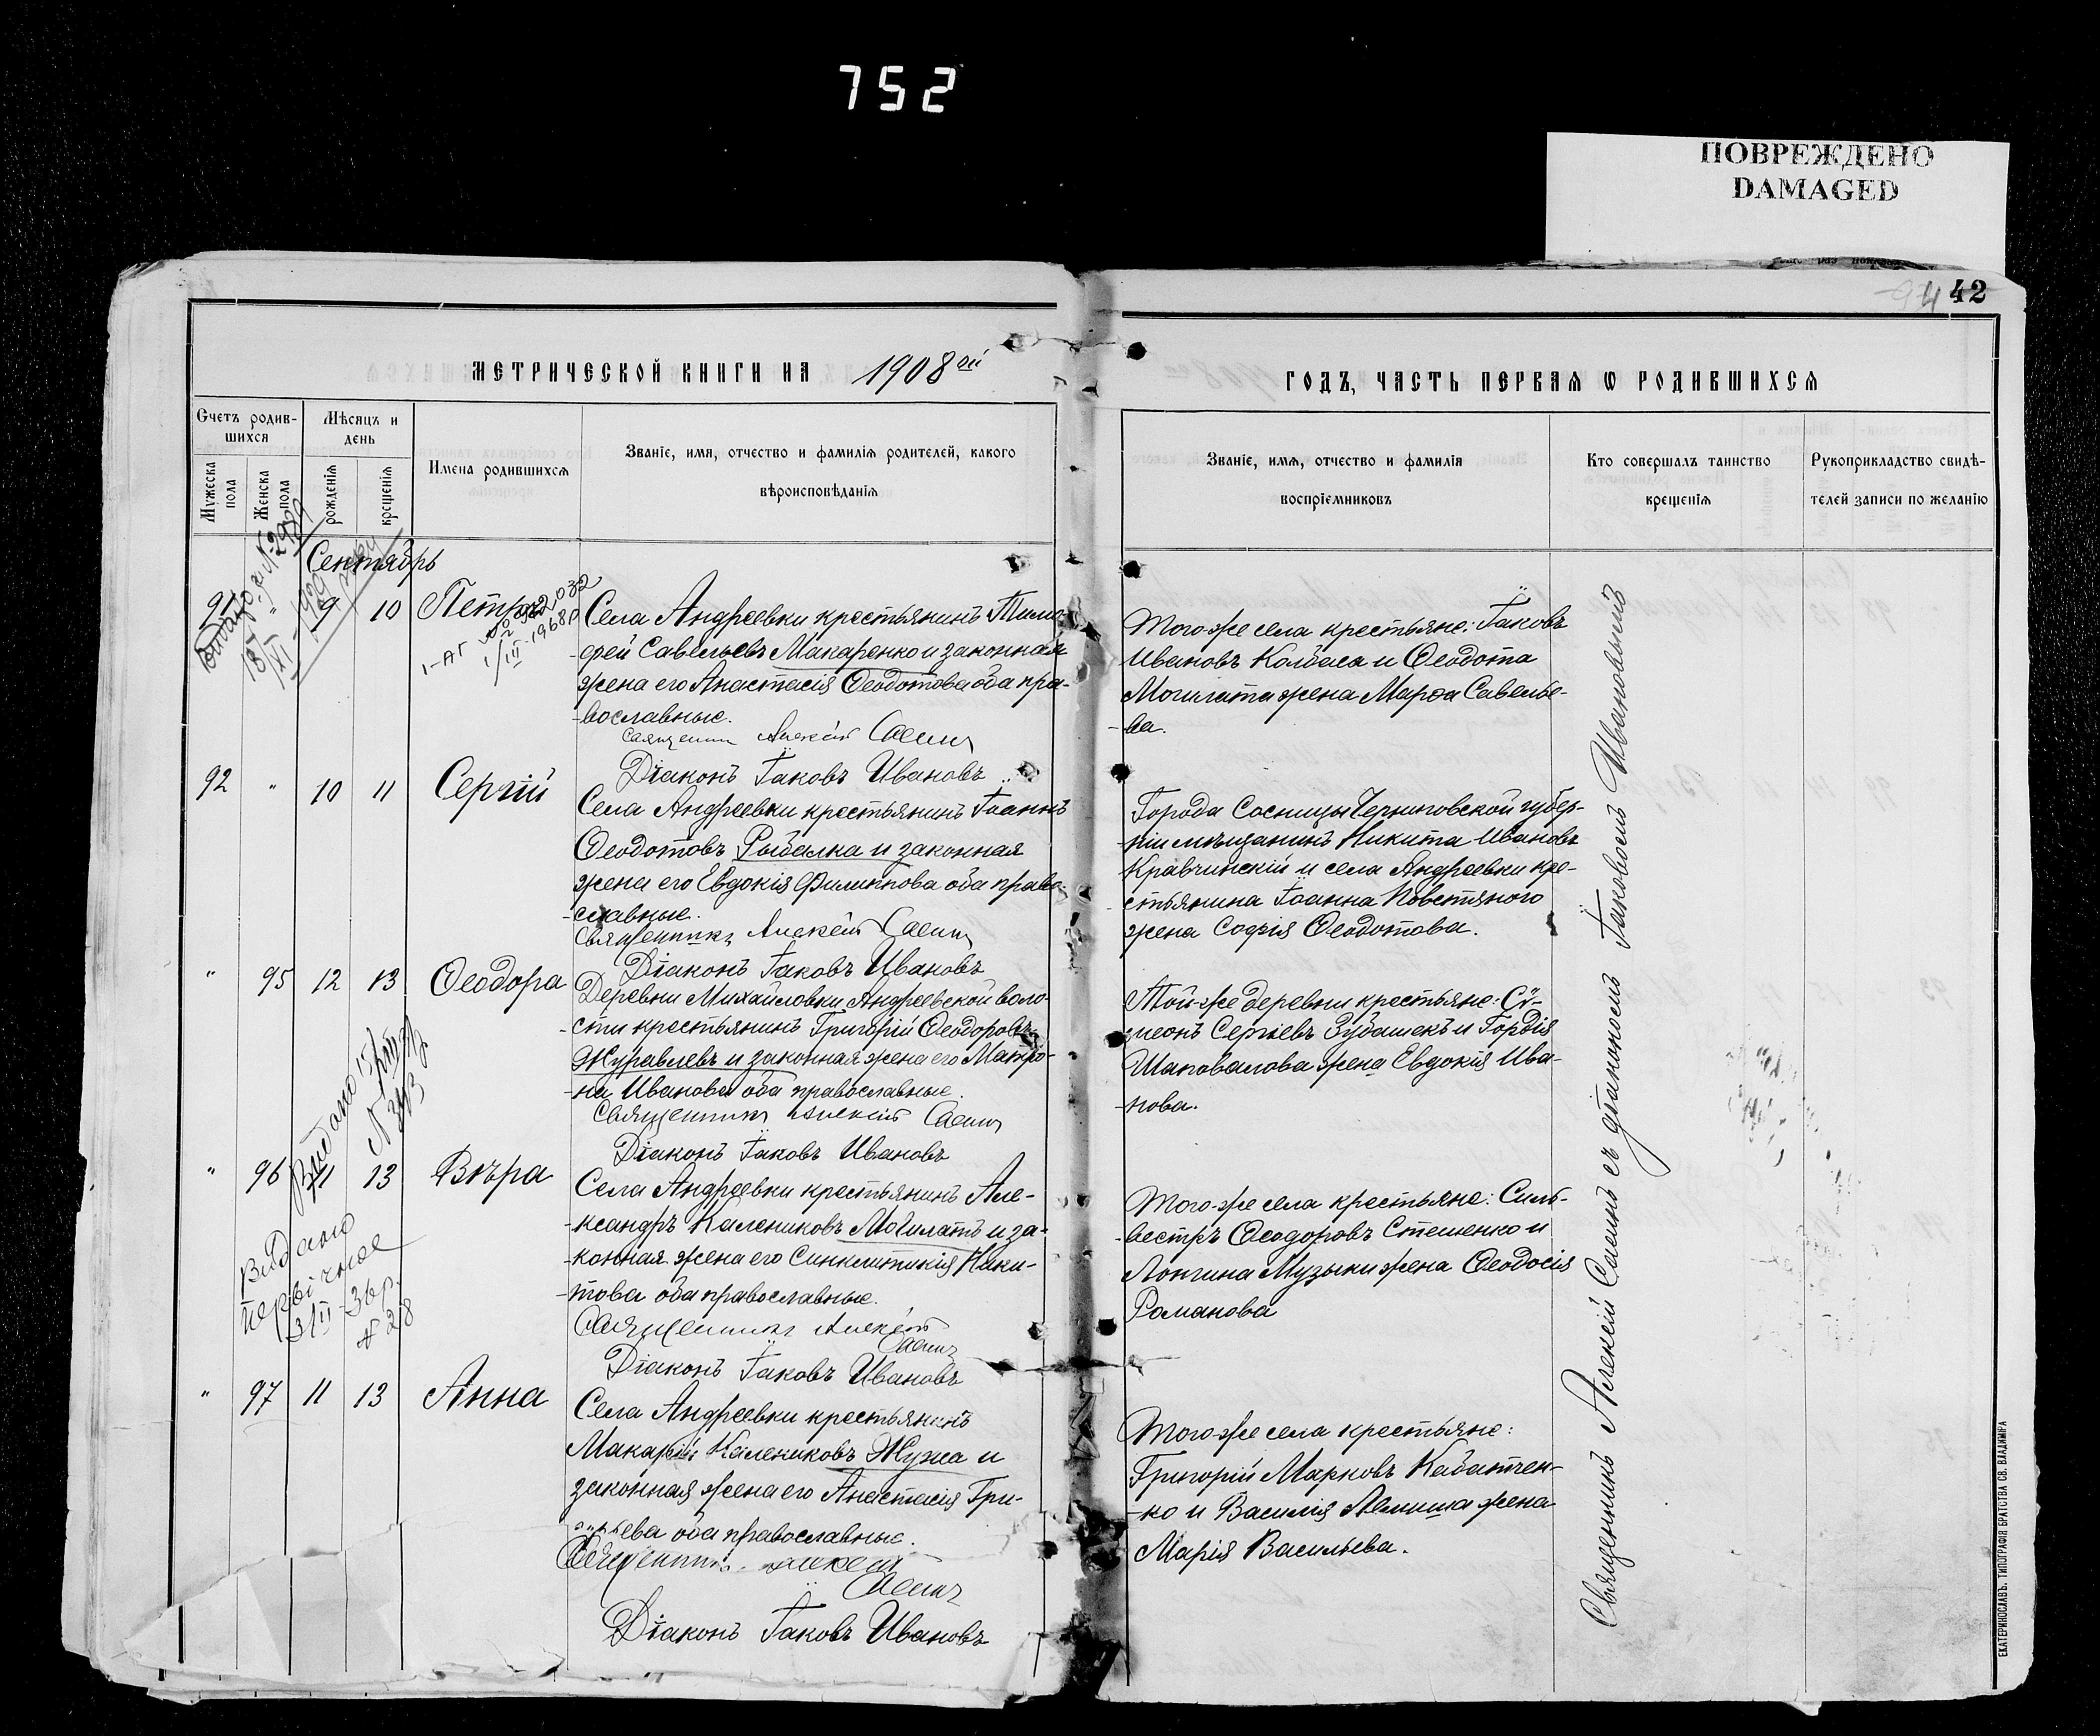 752
ПОВРЕЖДЕНО
DAMAGED
42
МЕТРИЧЕСКОЙ КНИГИ НА 1908ой
ГОДЪ, ЧАСТЬ ПЕРВАЯ Ѡ РОДИВШИХСЯ
Счетъ родив-
шихся
Мужеска
пола
Женска
пола
Мѣсяцъ и
день
рожденія
крещенія
Имена родившихся
Званіе, имя, отчество и фамилія родителей, какого
вѣроисповѣданія
Званіе, имя, отчество и фамилія
воспріемниковъ
Кто совершалъ таинство
крещенія
Рукоприкладство свидѣ-
телей записи по желанію
Сентябрь
91 " 9 10 Петръ
Села Андреевки крестьянинъ Тимо-
-фей Савельевъ Макаренко и законная
жена его Анастасія Ѳеодотова оба пра-
-вославные.
Священникъ Алексій Саенъ
Діаконъ Іаковъ Ивановъ
Того-же села крестьяне: Іаковъ
Ивановъ Колбаса и Ѳеодота
Могилата жена Марѳа Савелье-
-ва.
92 " 10 11 Сергій
Села Андреевки крестьянинъ Іоаннъ
Ѳеодотовъ Рыбалка и законная
жена его Евдокія Филиппова оба право-
-славные.
Священникъ Алексій Саенъ
Діаконъ Іаковъ Ивановъ
Города Сосницы Черниговской губер-
-ніи мѣщанинъ Никита Ивановъ
Кравчинскій и села Андреевки кре-
стьянина Іоанна Повстяного
жена Софія Ѳеодотова.
" 95 12 13 Ѳеодора
Деревни Михайловки Андреевской воло-
-сти крестьянинъ Григорій Ѳеодоровъ
Журавлевъ и законная жена его Матро-
-на Иванова оба православные.
Священникъ Алексій Саенъ
Діаконъ Іаковъ Ивановъ
Той-же деревни крестьяне: Сѵ-
-меонъ Сергіевъ Зубашекъ и Гордія
Шаповалова жена Евдокія Ива-
-нова.
" 96 11 13 Вѣра
Села Андреевки крестьянинъ Але-
-ксандръ Калениковъ Могилатъ и за-
-конная жена его Синклитикія Ники-
-това оба православные.
Священникъ Алексій
Саенъ
Діаконъ Іаковъ Ивановъ
Того-же села крестьяне: Силь-
-вестръ Ѳеодоровъ Стешенко и
Лонгина Музыки жена Ѳеодосія
Романова
" 97 11 13 Анна
Села Андреевки крестьянинъ
Макарій Калениковъ Жужа и
законная жена его Анастасія Гри-
-горьева оба православные.
Священникъ Алексій
Саенъ
Діаконъ Іаковъ Ивановъ
Того-же села крестьяне:
Григорій Марковъ Кабатчен-
-ко и Василія Лемиша жена
Марія Васильева.
Священникъ Алексій Саенъ съ діакономъ Іаковомъ Ивановымъ
Видано
первічное
3/II 36 р.
№ 28
ЕКАТЕРИНОСЛАВЪ. ТИПОГРАФІЯ БРАТСТВА СВ. ВЛАДИМІРА